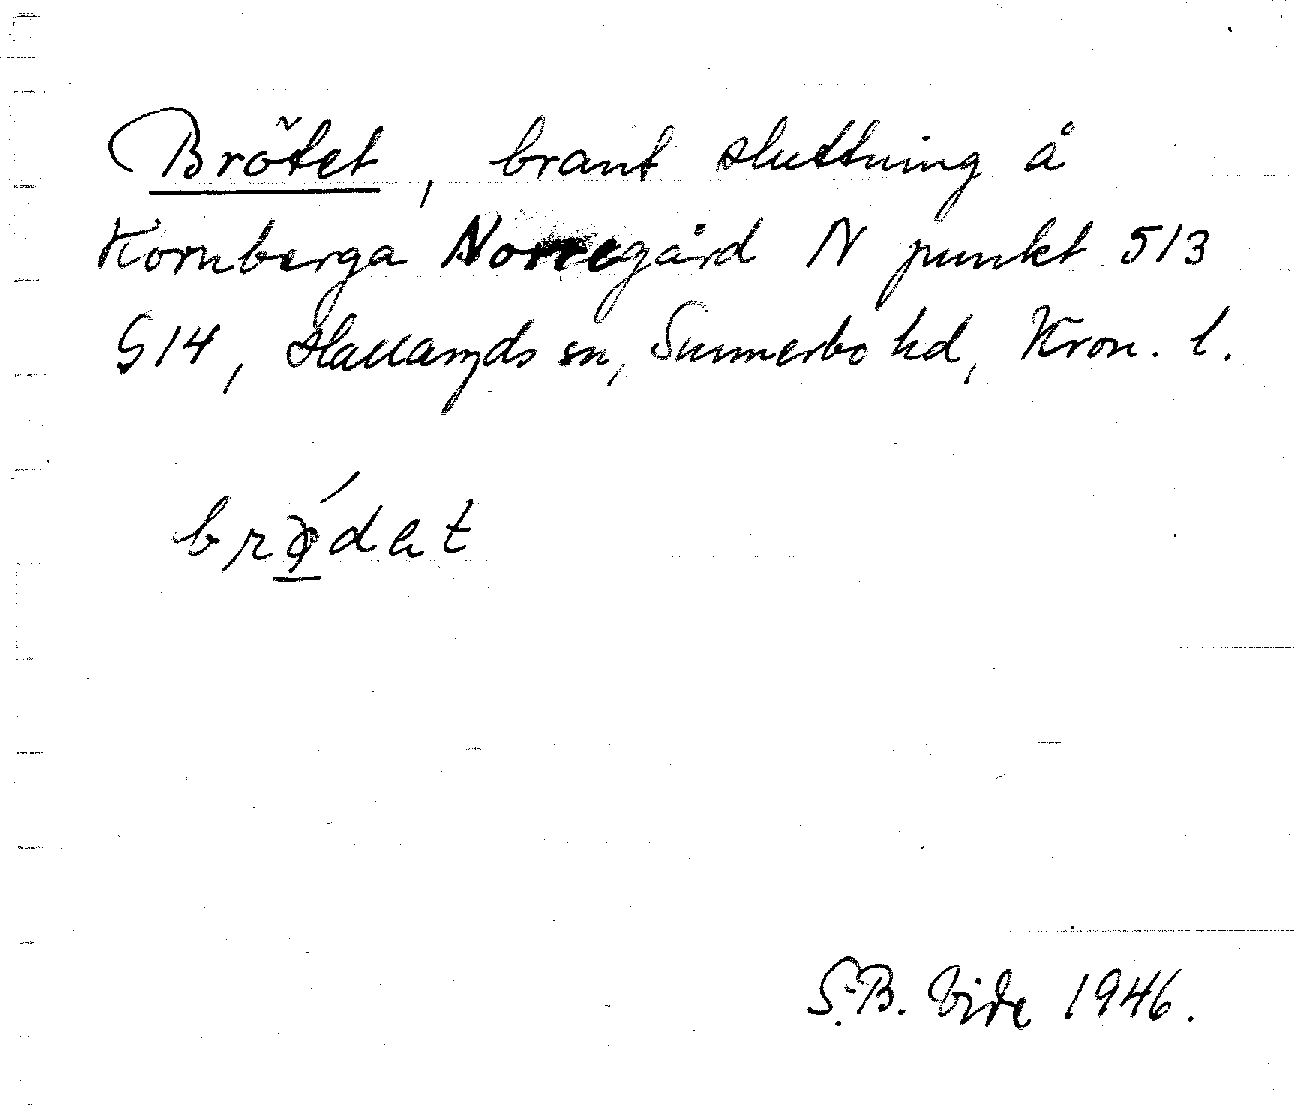 Brötet, brant sluttning å
Kornberga Norregård N punkt 513
514, Hallaryds sn, Sunnerbo hd, Kron. l.
brǿdat
S.B. Vide 1946.